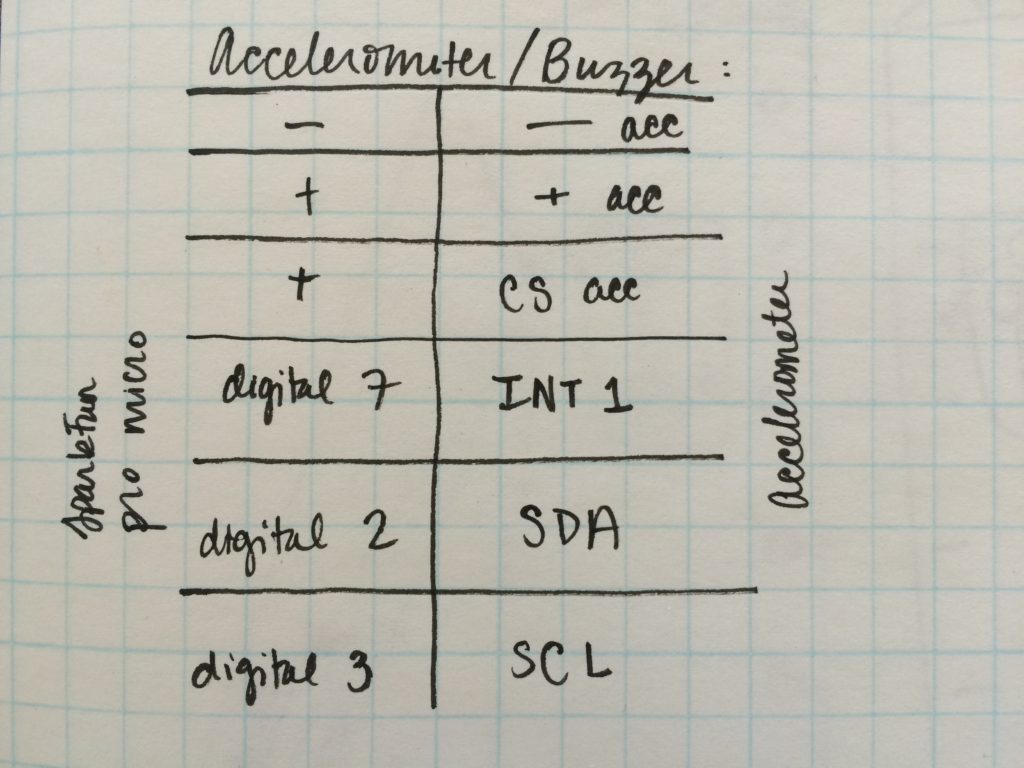 Accelerometer / Buzzer :
— — acc
+ + acc
+ CS acc
digital 7 INT 1
digital 2 SDA
digital 3 SCL
sparkfun
pro micro
Accelerometer